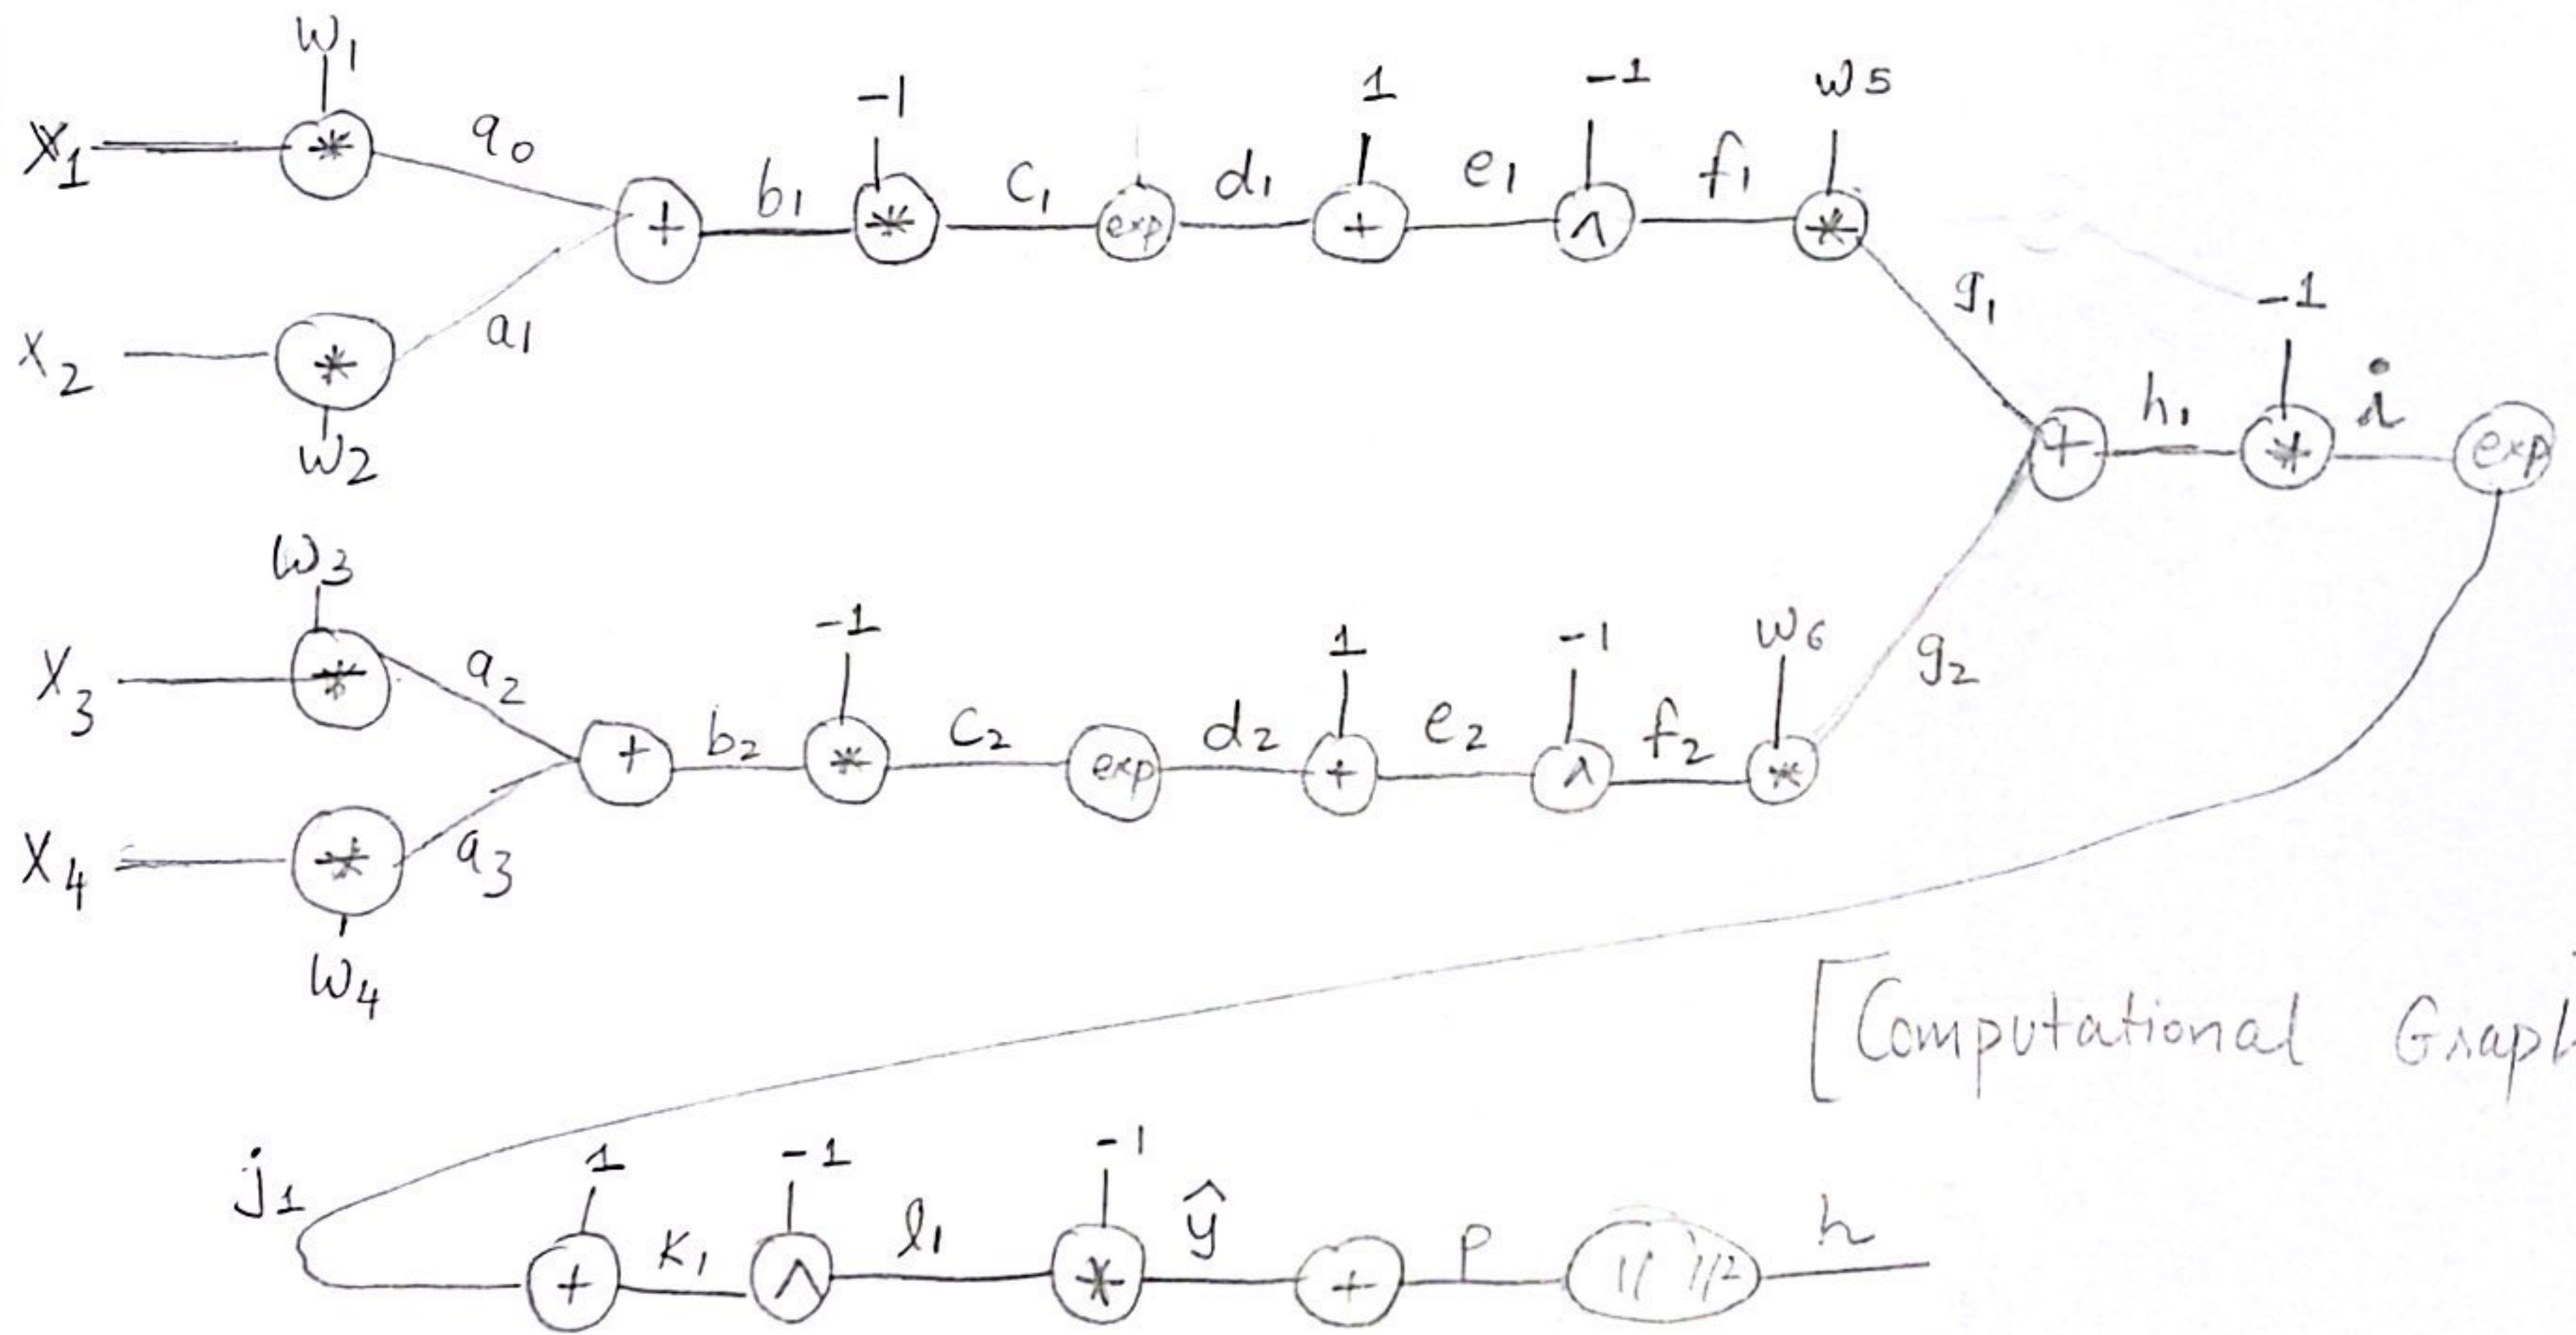 w1
X1 * a0 -1 1 -1 w5
+ b1 * c1 exp d1 + e1 ^ f1 *
X2 * a1 g1 -1
w2 + h1 * i exp
w3
X3 * a2 -1 1 -1 w6 g2
+ b2 * c2 exp d2 + e2 ^ f2 *
X4 * a3
w4
[Computational
j1 1 -1 -1
+ k1 ^ l1 * ŷ + p || ||2 h